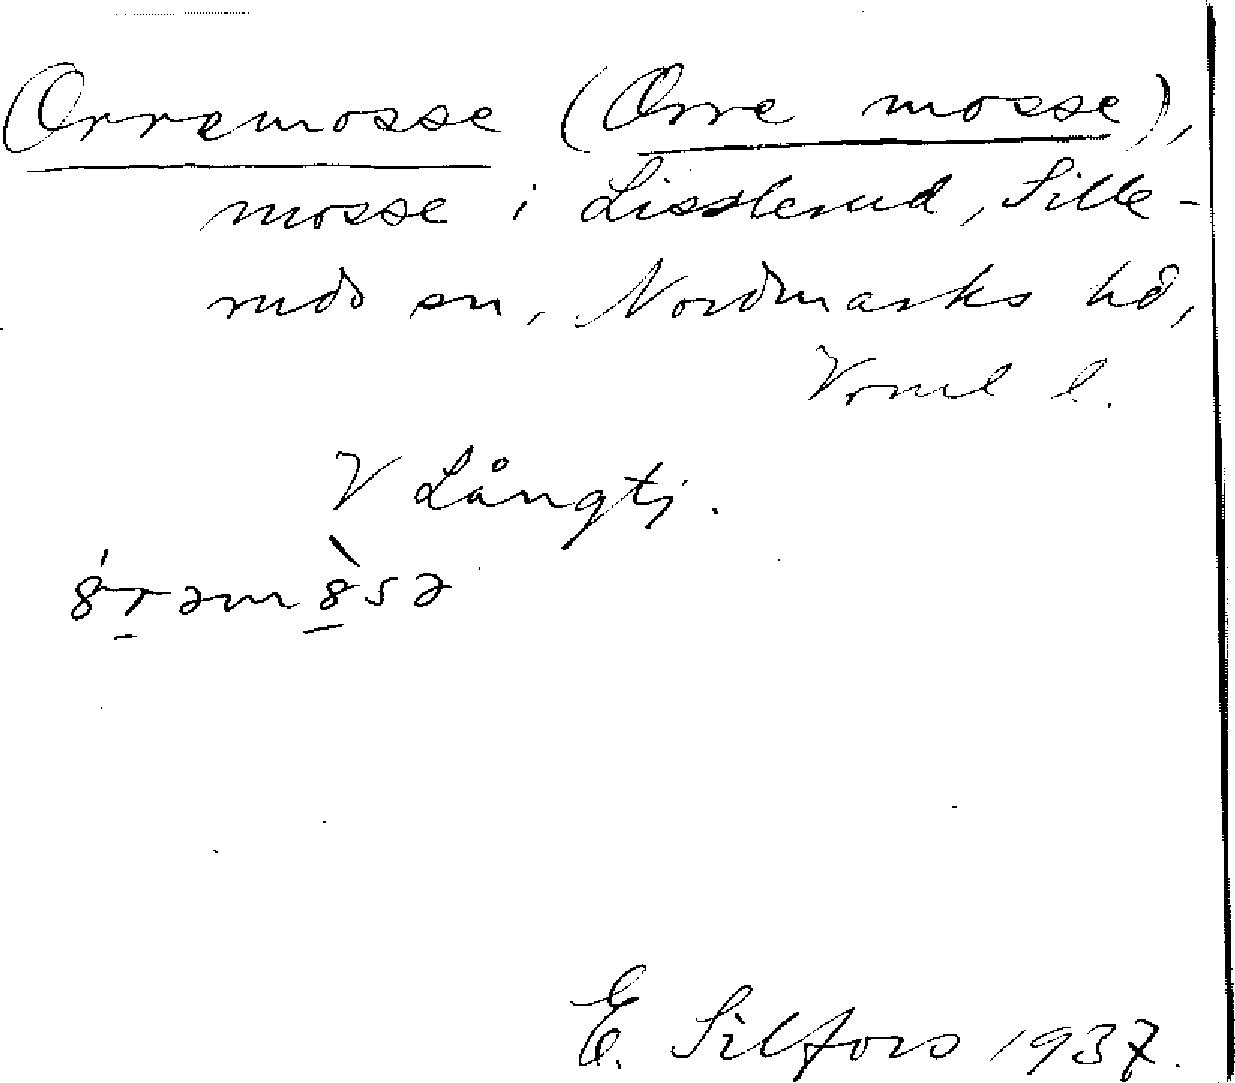 Orremosse (Orre mosse),
mosse i Lisslerud, Sille-
ruds sn, Nordmarks hd,
Vrml l.
V Långtj.
E. Silfors 1937.